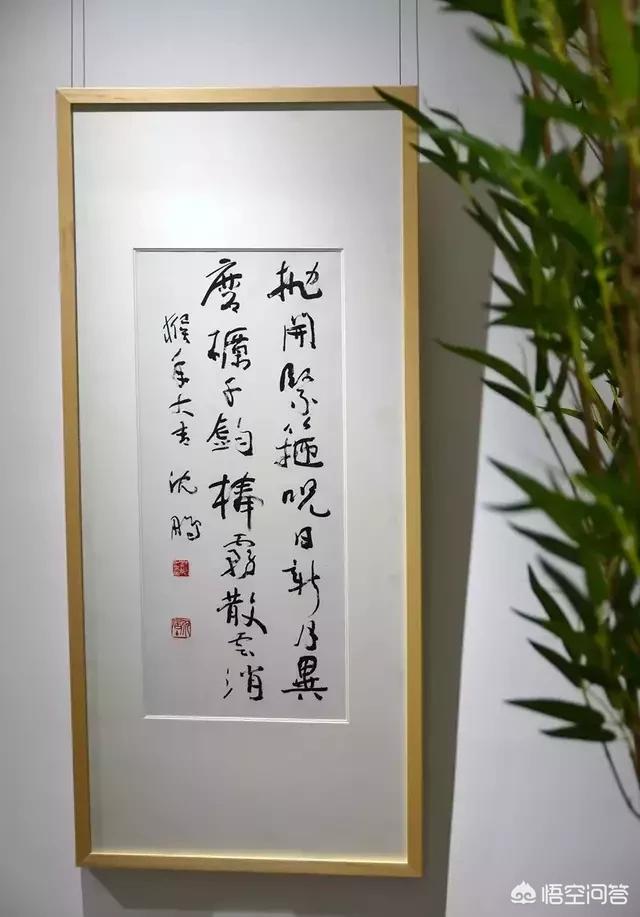 抛開緊箍呪日新月異
磨礪千鈞棒霧散云消
猴年大吉 沈鵬
悟空问答